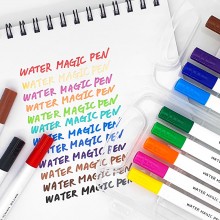 WATER MAGIC PEN
WATER MAGIC PEN
WATER MAGIC PEN
WATER MAGIC PEN
WATER MAGIC PEN
WATER MAGIC PEN
WATER MAGIC PEN
WATER MAGIC PEN
WATER MAGIC PEN
WATER MAGIC PEN
WATER MAGIC PEN
WATER MAGIC PEN